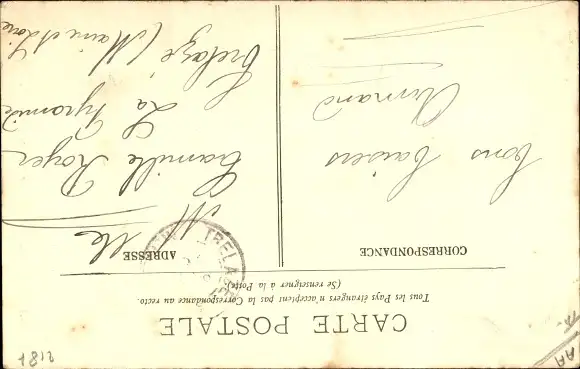 CARTE POSTALE
Tous les Pays étrangers n'acceptent pas la Correspondance au recto.
(Se renseigner à la Poste).
CORRESPONDANCE
Bons baisers
Armand
ADRESSE
Mlle
Camille Royer
La Pyramide
Trélazé (Maine et Loire
TRELAZE